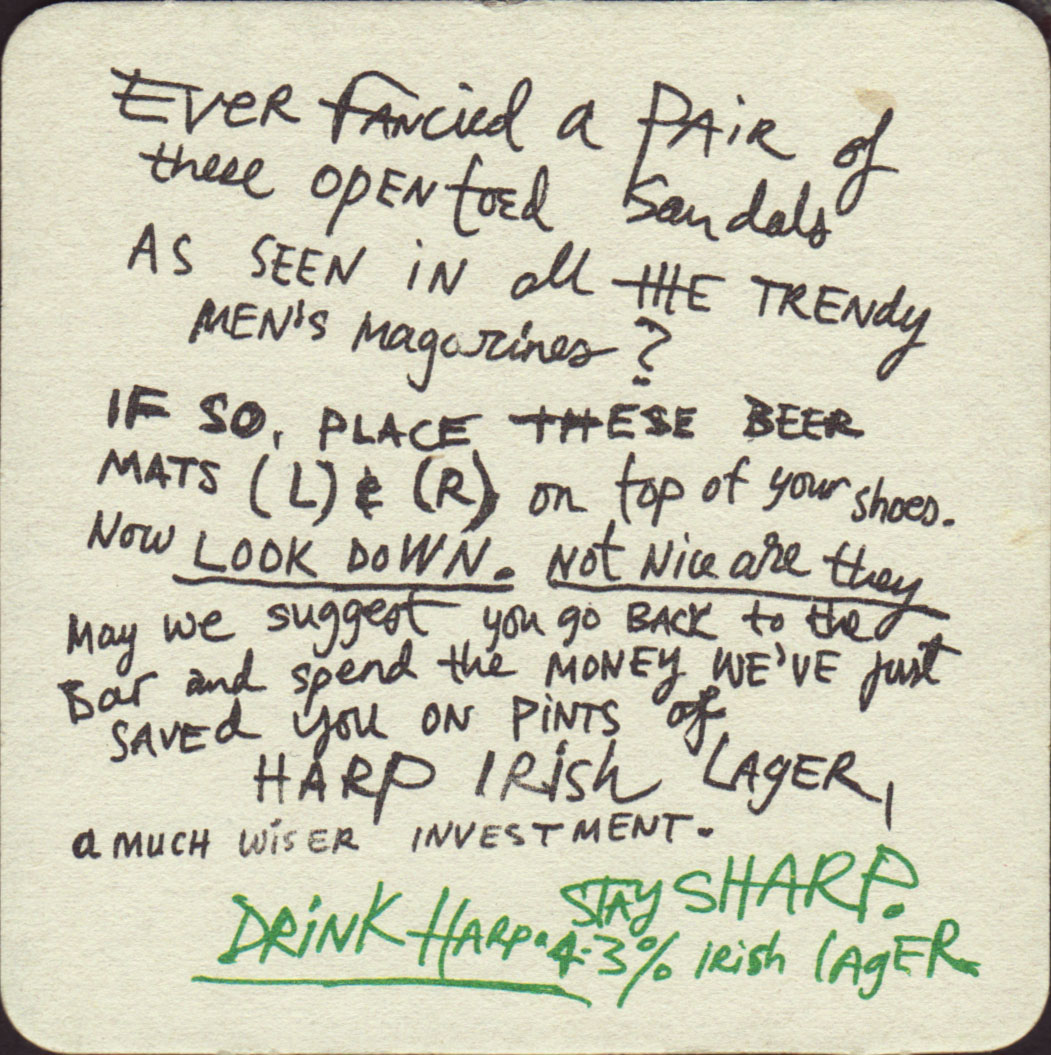 EVER fANcied a PAiR of
these OPEN toed Sandals
AS SEEN iN all tHE TRENdy
MEN'S Magazines?
IF SO, PLACE THESE BEER
MATS (L) & (R) on top of your shoes.
Now LOOK DOWN. Not Nice are they
May we suggest you go BACK to the
Bar and spend the MONEY WE'VE just
SAVEd you ON PiNTS of
HARP IRish LAgER,
a MUCH WiSER INVESTMENT.
STAY SHARP.
DRiNK HARP. 4.3% IRish lAgER.